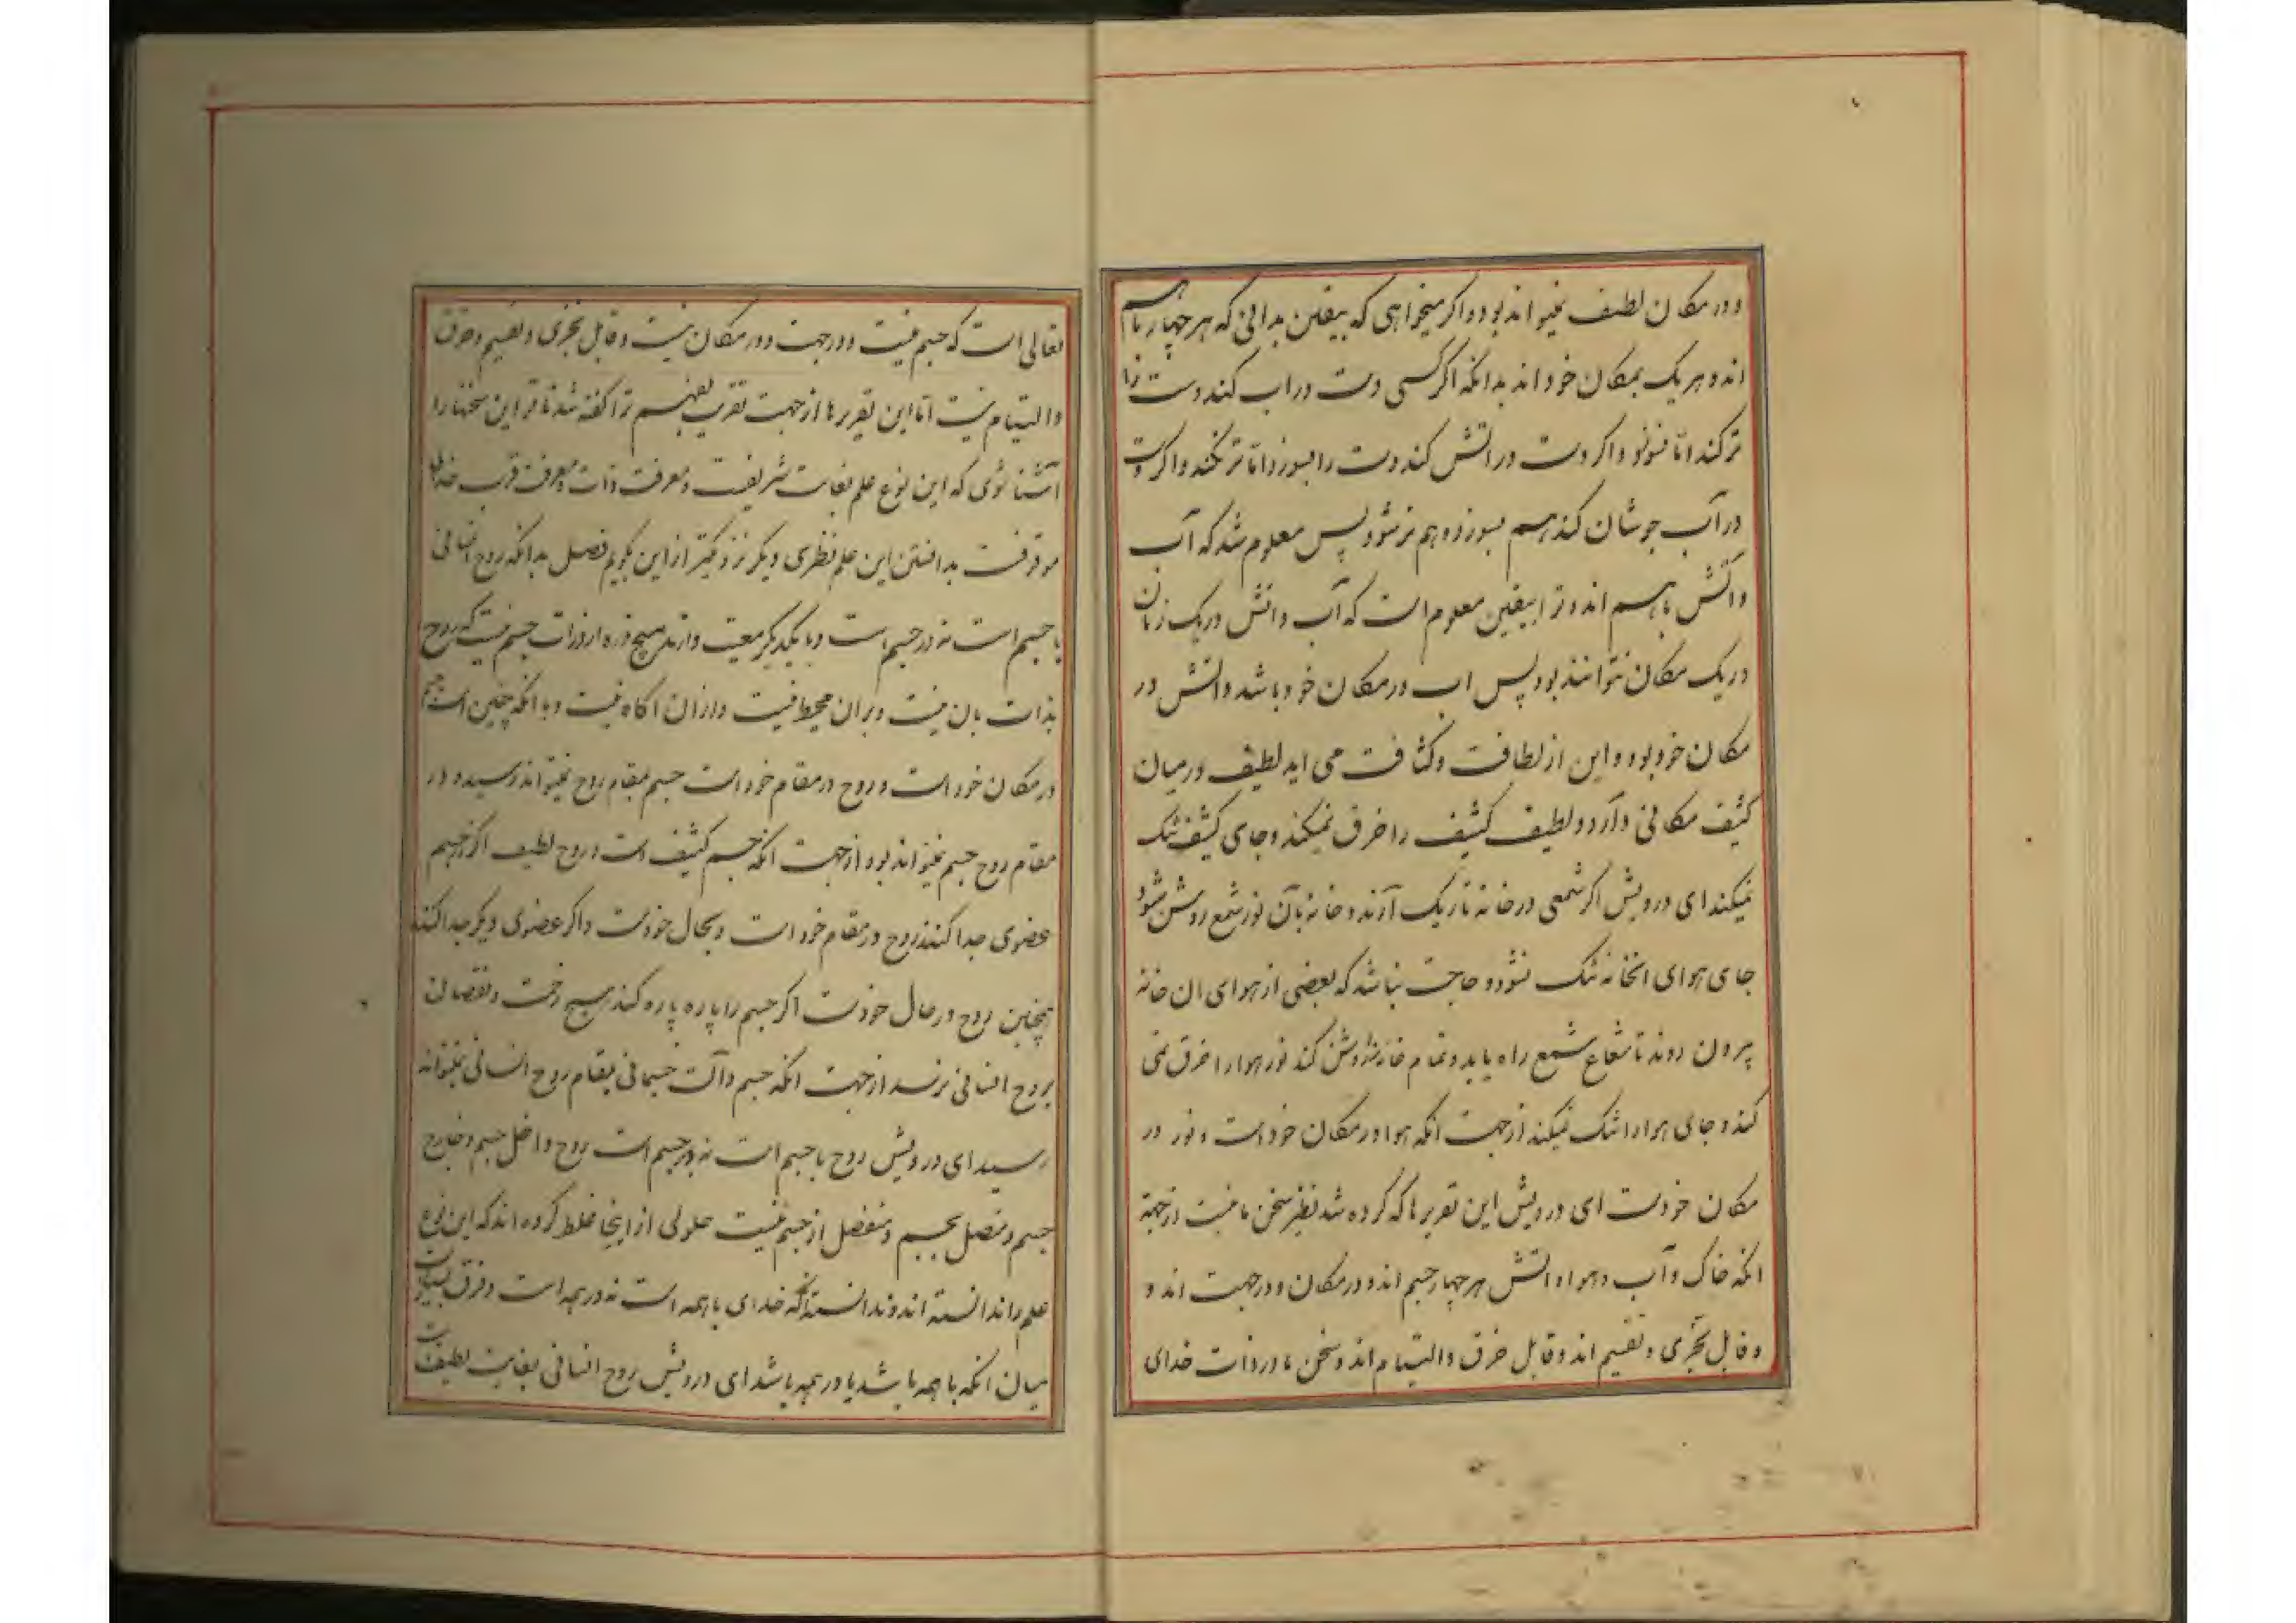 و در مکان لطیف نمیتواند بود و اکر میخواهی که بیقین بدانی که هر چهار باهم
اند و هر یک بمکان خود اند بدانکه اکر کسی دست در اب کند دست را
تر کند اما نسوزد و اکر دست در اتش کند دست را بسوزد اما تر نکند و اکر دست
در آب جوشان کند هم بسوزد و هم تر شود پس معلوم شد که آب
و آتش باهم اند و ترا بیقین معلوم است که آب و اتش در یک زمان
در یک مکان نتوانند بود پس اب در مکان خود باشد و اتش در
مکان خود بود و این از لطافت و کثافت می اید لطیف در میان
کثیف مکانی دارد و لطیف کثیف را خرق نمیکند و جای کثیف تنک
نمیکند ای درویش اکر شمعی در خانه تاریک آرند و خانه بآن نور شمع روشن شود
جای هوای انخانه تنک نشود و حاجت نباشد که بعضی از هوای ان خانه
بیرون روند تا شعاع شمع راه یابد و تمام خانه را روشن کند نور هوا را خرق نمی
کند و جای هوا را تنک نمیکند از جهت انکه هوا در مکان خود است و نور در
مکان خودست ای درویش این تقریرها که کرده شد نظیر سخن ما نیست از جهة
انکه خاک و آب و هوا و اتش هر چهار جسم اند و در مکان و در جهت اند و
و قابل تجزی و تقسیم اند و قابل خرق و التیام اند و سخن ما در ذات خدای
تعالی است که جسم نیست و در جهت و در مکان نیست و قابل تجزی و تقسیم و خرق
و التیام نیست اما این تقریرها از جهت تقریب تفهیم ترا کفته شد تا تو این سخنها را
آشنا شوی که این نوع علم بغایت شریفست و معرفت ذات و معرفت قرب خدای
موقوفست بدانستن این علم نظری دیکر نزدیکتر از این بکویم فصل بدانکه روح انسانی
با جسم است نه در جسم است و با یکدیکر معیت دارند هیچ ذره از ذرات جسم نیست که روح
بذات بان نیست و بران محیط نیست و ازان اکاه نیست و با انکه چنین است جسم
در مکان خود است و روح در مقام خود است جسم بمقام روح نمیتواند رسید و در
مقام روح جسم نمیتواند بود از جهت انکه جسم کثیف است و روح لطیف اکر از جسم
عضوی جدا کنند روح در مقام خود است و بحال خودست و اکر عضوی دیکر جدا کنند
همچنین روح در حال خودست اکر جسم را پاره پاره کنند هیچ زحمت و نقصان
بروح انسانی نرسد از جهت انکه جسم و آلت جسمانی بمقام روح انسانی نمیتواند
رسید ای درویش روح با جسم است نه در جسم است روح داخل جسم و خارج
جسم و متصل بجسم و منفصل از جسم نیست حلولی از اینجا غلط کرده اند که این نوع
علم را ندانسته اند و ندانسته اند که خدای با همه است نه در همه است و فرق بسیارست
میان انکه با همه باشد یا در همه باشد ای درویش روح انسانی بغایت لطیف است